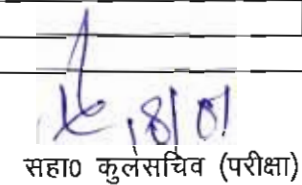 18/01
सहा0 कुलसचिव (परीक्षा)